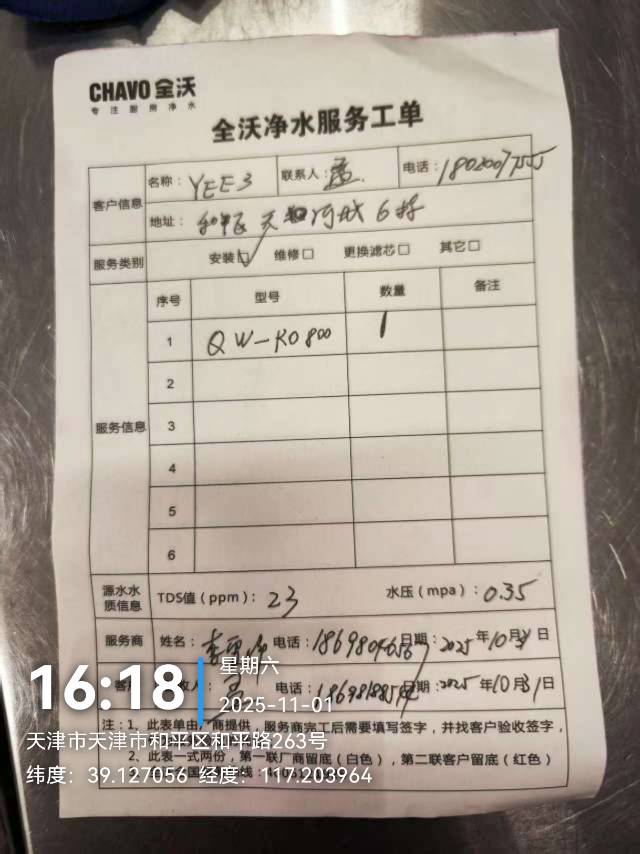 CHAVO 全沃
专注厨房净水
全沃净水服务工单
客户信息 名称：YEE3 联系人：孟 电话：18020077555
地址：和平区天 河城6楼
服务类别 安装☑ 维修□ 更换滤芯□ 其它□
服务信息 序号 型号 数量 备注
1 QW-RO800 1
2
3
4
5
6
源水水质信息 TDS值（ppm）：23 水压（mpa）：0.35
服务商 姓名：李 电话：186980 日期：2025年10月31日
电话： 日期：2025年10月31日
16:18 星期六
2025-11-01
注：1、此表单由厂商提供，服务商完工后需要填写签字，并找客户验收签字，
天津市天津市和平区和平路263号
2、此表一式两份，第一联厂商留底（白色），第二联客户留底（红色）
纬度：39.127056 经度：117.203964